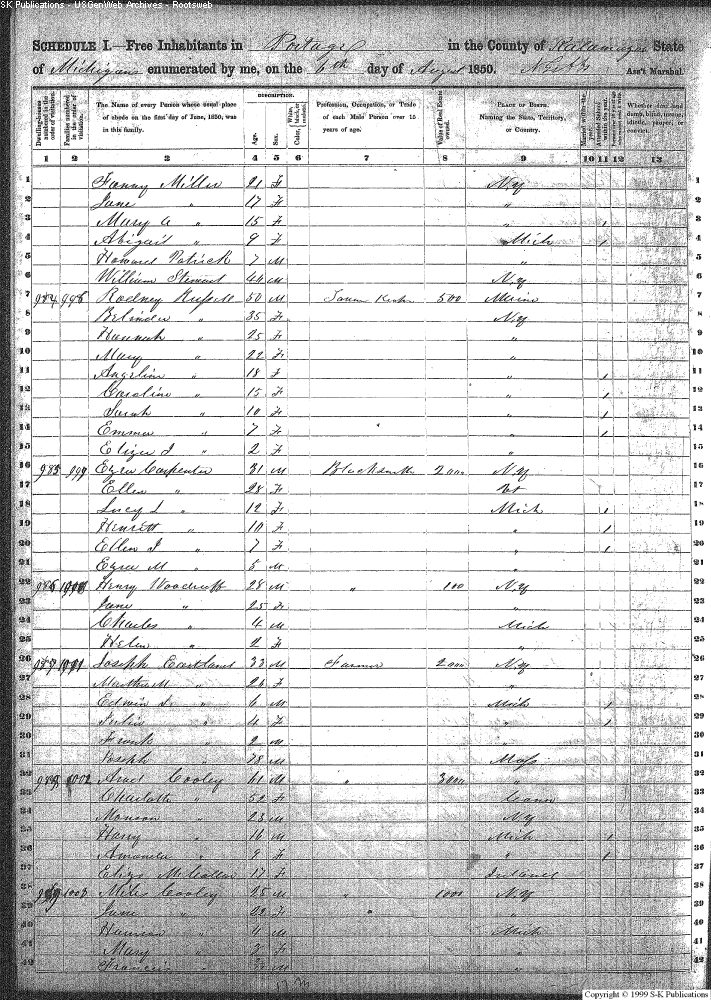 SK Publications - USGenWeb Archives - Rootsweb
SCHEDULE I.—Free Inhabitants in Portage in the County of Kalamazoo State
of Michigan enumerated by me, on the 6th day of August 1850. Ass't Marshal.
Dwelling-houses numbered in the order of visitation.
Families numbered in the order of visitation.
The Name of every Person whose usual place of abode on the first day of June, 1850, was in this family.
DESCRIPTION.
Age.
Sex.
Color, White, black, or mulatto.
Profession, Occupation, or Trade of each Male Person over 15 years of age.
Value of Real Estate owned.
PLACE OF BIRTH. Naming the State, Territory, or Country.
Married within the year.
Attended School within the year.
Whether deaf and dumb, blind, insane, idiotic, pauper, or convict.
1 2 3 4 5 6 7 8 9 10 11 12 13
1 Fanny Miller 21 F N.Y 1
2 Jane " 17 F " 2
3 Mary A " 15 F " / 3
4 Abigail " 9 F Mich / 4
5 Howard Patrick 7 M " 5
6 William Stewart 44 M N.Y 6
7 984 998 Rodney Russell 50 M 500 Maine 7
8 Belinda " 35 F N.Y 8
9 Hannah " 25 F " 9
10 Mary " 22 F " 10
11 Angeline " 18 F " / 11
12 Caroline " 15 F " / 12
13 Sarah " 10 F " / 13
14 Emma " 7 F " / 14
15 Eliza J " 2 F " 15
16 985 999 Ezra Carpenter 31 M Blacksmith 2000 N.Y 16
17 Ellen " 28 F Vt 17
18 Lucy L " 12 F Mich / 18
19 Henriett " 10 F " / 19
20 Ellen J " 7 F " / 20
21 Ezra M " 5 M " 21
22 986 Henry Woodruff 28 M " 100 N.Y 22
23 Jane " 25 F " 23
24 Charles " 4 M Mich 24
25 Helen " 2 F " 25
26 987 Joseph 33 M Farmer 2000 N.Y 26
27 Martha M " 26 F " 27
28 Edwin " 6 M Mich / 28
29 " 4 F " / 29
30 Frank " 2 M " 30
31 Joseph " 78 M Mass 31
32 1002 Arad Cooley 61 M " 3000 " 32
33 Charlotte " 52 F Conn 33
34 Monson " 23 M N.Y 34
35 Harry " 16 M Mich / 35
36 Amanda " 9 F " / 36
37 Eliza McCallen 17 F Ireland 37
38 1003 Miles Cooley 25 M " 1000 N.Y 38
39 Jane " 22 F " " 39
40 " 4 M Mich 40
41 Mary " F " 41
42 Francis " M " 42
Copyright © 1999 S-K Publications